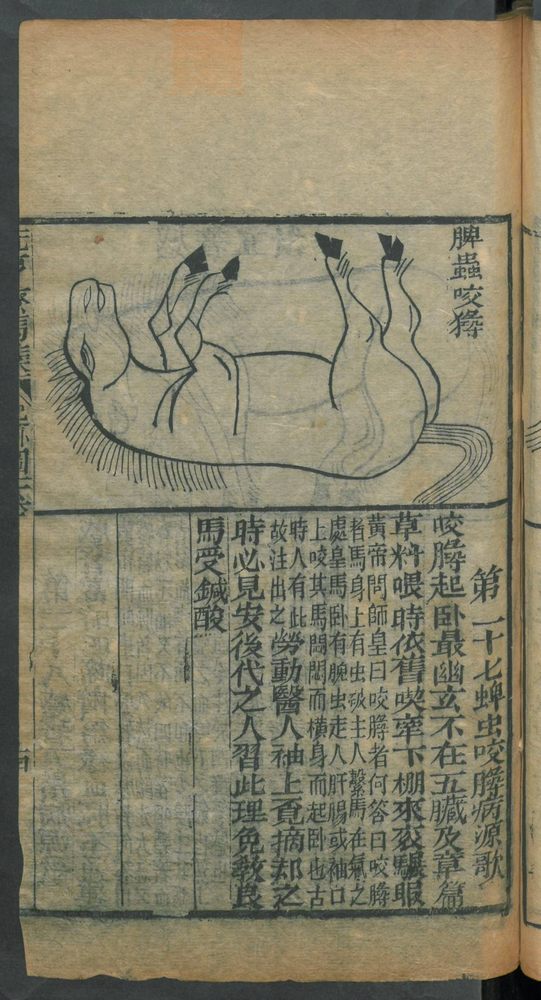 脾蟲咬𤜵
第二十七蜱虫咬膯病源歌
咬膯起卧最幽玄不在五臟及草篇
草料喂時依舊喫牽下棚來衮驟眠
黄帝問師皇曰咬膯者何答曰咬膯
者馬身上有虫破主人繫馬在氣之
處皇馬卧有腕虫走人肝腸或袖口
上咬其馬悶悶而橫身而起卧也古
時人有此
故注出之勞動醫人袖上覓摘却之
時必見安後代之人習此理免教良
馬受鍼酸